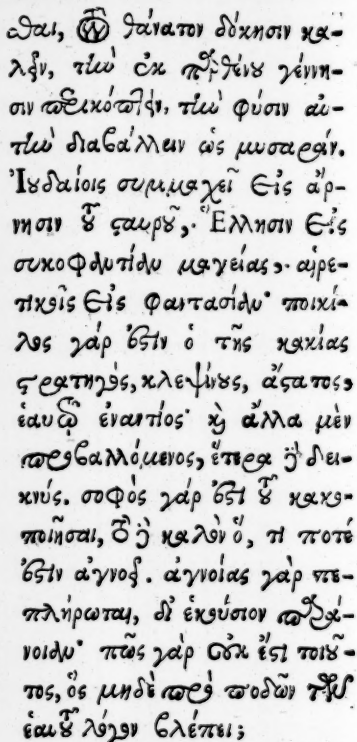 σθαι, τὸν θάνατον δόκησιν κα-
λεῖν, τὴν ἐκ παρθένου γέννη-
σιν περικόπτειν, τὴν φύσιν αὐ-
τὴν διαβάλλειν ὡς μυσαράν.
Ἰουδαίοις συμμαχεῖ εἰς ἄρ-
νησιν τοῦ σταυροῦ, Ἕλλησιν εἰς
συκοφαντίαν μαγείας, αἱρε-
τικοῖς εἰς φαντασίαν· ποικί-
λος γάρ ἐστιν ὁ τῆς κακίας
στρατηγὸς, κλεψίνους, ἄστατος,
ἑαυτῷ ἐναντίος· καὶ ἄλλα μὲν
προβαλλόμενος, ἕτερα δὲ δει-
κνύς. σοφὸς γάρ ἐστι τοῦ κακο-
ποιῆσαι, τὸ δὲ καλὸν ὅ, τι ποτέ
ἐστιν ἀγνοεῖ. ἀγνοίας γὰρ πε-
πλήρωται, δι᾽ ἑκούσιον παρά-
νοιαν· πῶς γὰρ οὐκ ἔστι τοιοῦ-
τος, ὃς μηδὲ πρὸ ποδῶν τὸν
ἑαυτοῦ λόγον βλέπει;